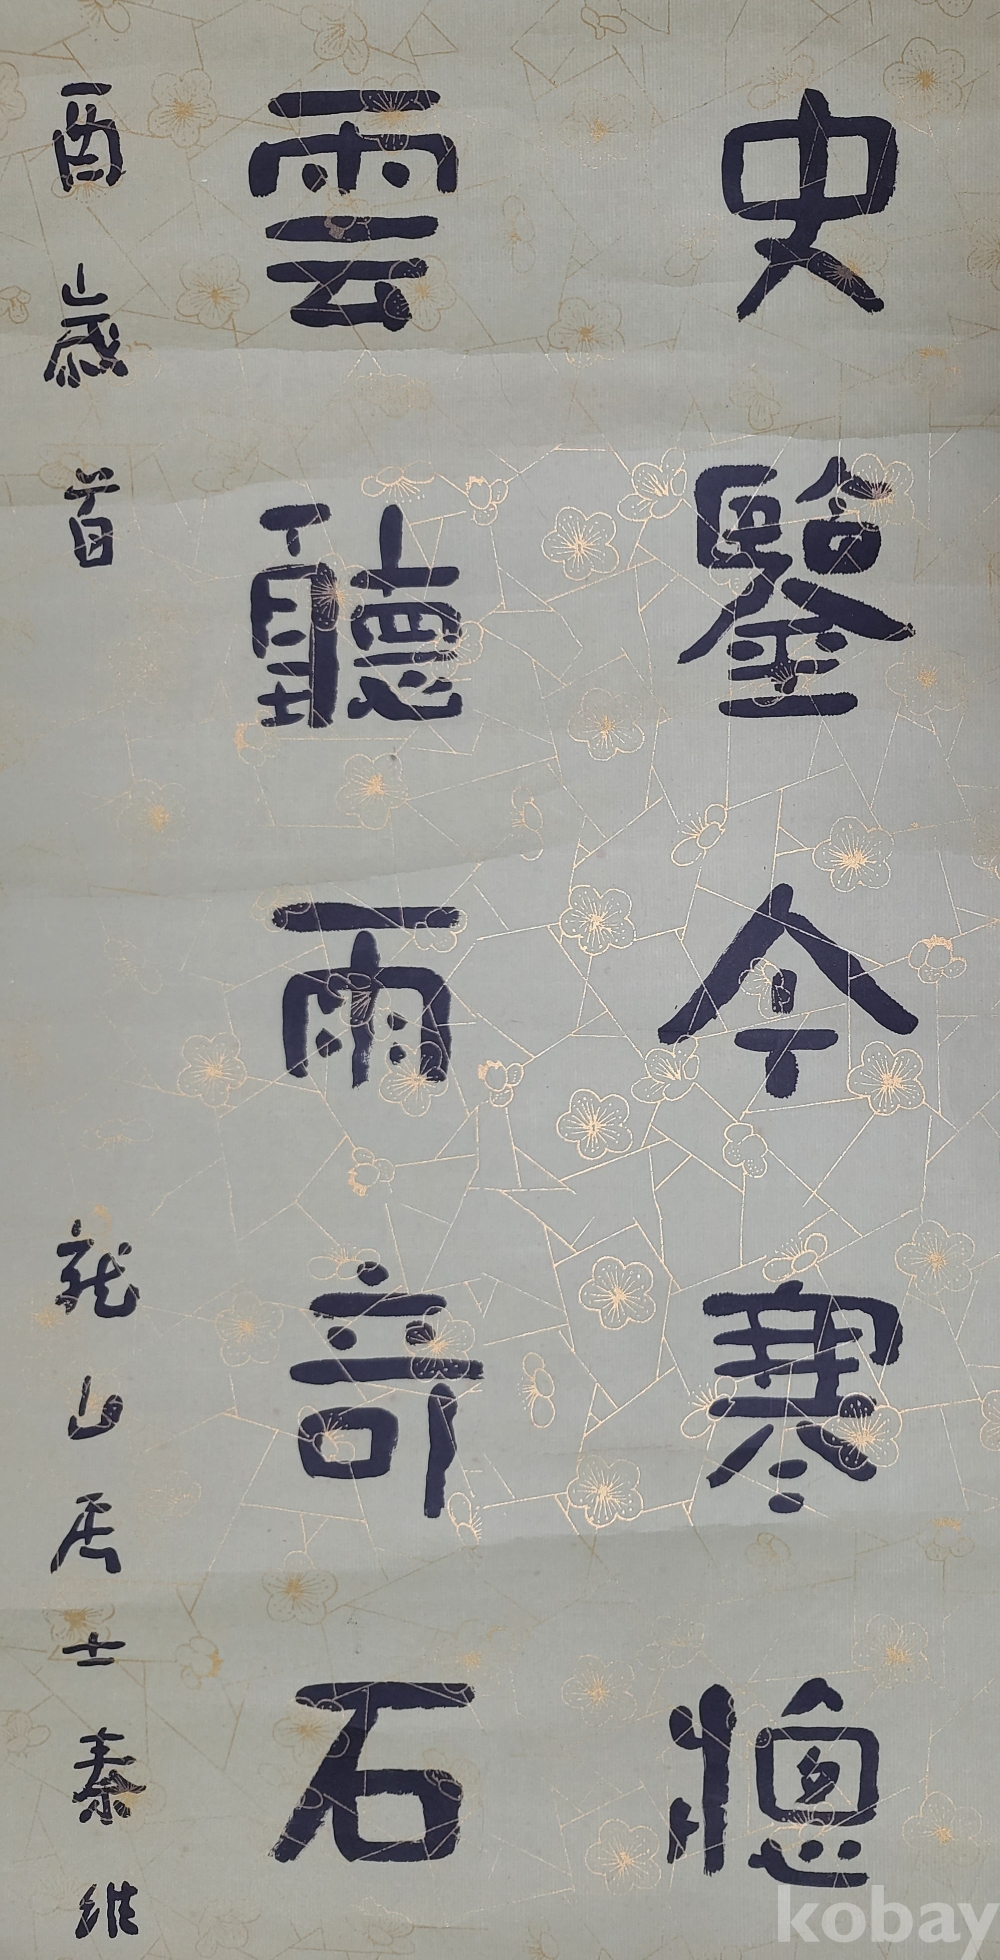 史鑒今寒牕
雲聽雨奇石
酉歲首 龍山居士秦維
kobay